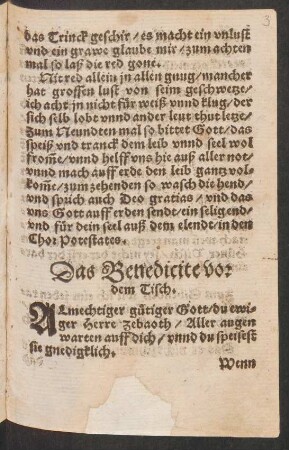 3
das Trinck geschir / es macht ein vnlust
vnd ein grawe glaube mir / zum achten
mal so laß die red gone.
Nit red allein jn allen gnug / mancher
hat grossen lust von seim geschwetze /
ich acht jn nicht für weiß vnnd klug / der
sich selb lobt vnnd ander leut thut letze /
Zum Neundten mal so bittet Gott / das
speiß vnd tranck dem leib vnnd seel wol
from̃e / vnnd helff vns hie auß aller not /
vnnd mach auff erde den leib gantz vol-
kom̃e / zum zehenden so wasch die hend /
vnd sprich auch Deo gratias / vnd das
vns Gott auff erden sendt / ein seligend /
vnd für dein seel auß dem elendt / in den
Chor Potestates.
Das Benedicite vor
dem Tisch.
ALmechtiger gütiger Gott / du ewi-
ger Herre Zebaoth / Aller augen
warten auff dich / vnnd du speisest
sie gnedigklich.
Wenn